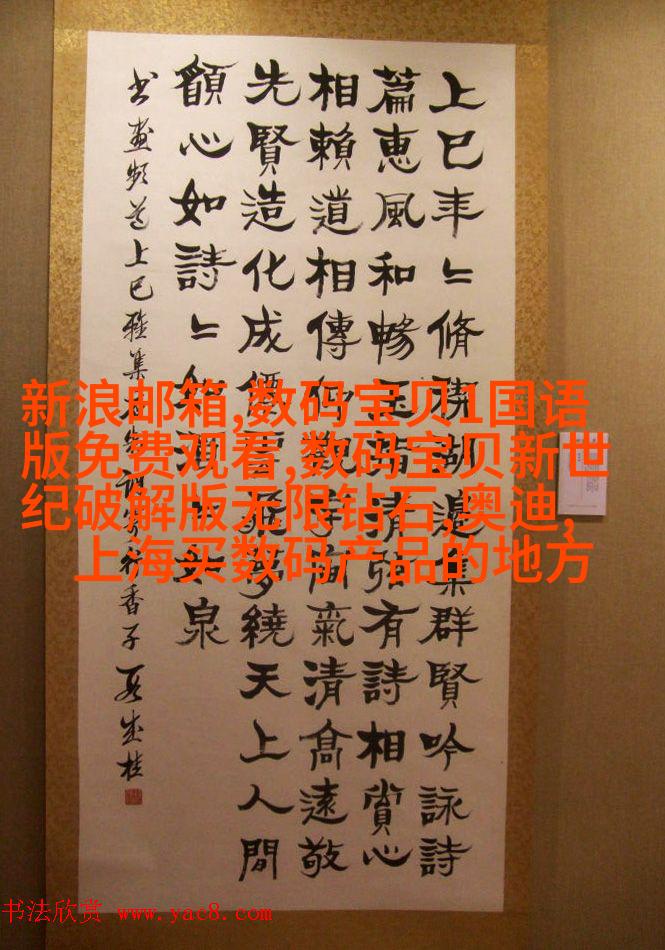 上巳年〻脩湖邊集群賢吟詠詩
篇惠風和暢有詩相賞心
相賴道相傳仰觀氣清高遠敬
先賢造化成夢繞天上人間
願心如詩〻酒如泉
书画频道上巳雅集香子
新浪邮箱,数码宝贝1国语
版免费观看,数码宝贝新世
纪破解版无限钻石,奥迪,
上海买数码产品的地方
书法欣赏 www.yac8.com